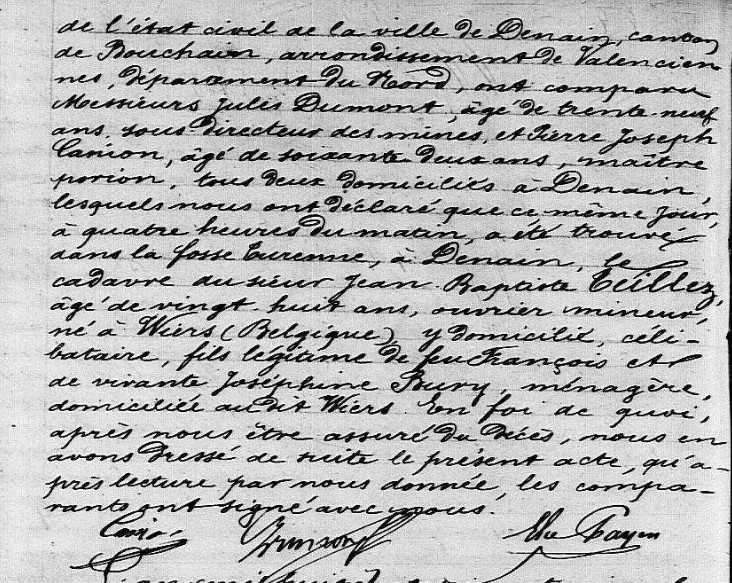 de l'état civil de la ville de Denain, canton
de Bouchain, arrondissement de Valencien-
nes, département du Nord, ont comparu
Messieurs Jules Dumont, âgé de trente-neuf
ans, sous-directeur des mines, et Pierre Joseph
Canion, âgé de soixante-deux ans, maître
porion, tous deux domiciliés à Denain,
lesquels nous ont déclaré que ce même jour,
à quatre heures du matin, a été trouvé
dans la fosse Turenne, à Denain, le
cadavre du sieur Jean-Baptiste Teillez,
âgé de vingt-huit ans, ouvrier mineur,
né à Wiers (Belgique), y domicilié, céli-
bataire, fils légitime de feu François et
de vivante Joséphine Bury, ménagère,
domiciliée audit Wiers. En foi de quoi,
après nous être assuré du décès, nous en
avons dressé de suite le présent acte, qu'a-
près lecture par nous donnée, les compa-
rants ont signé avec nous.